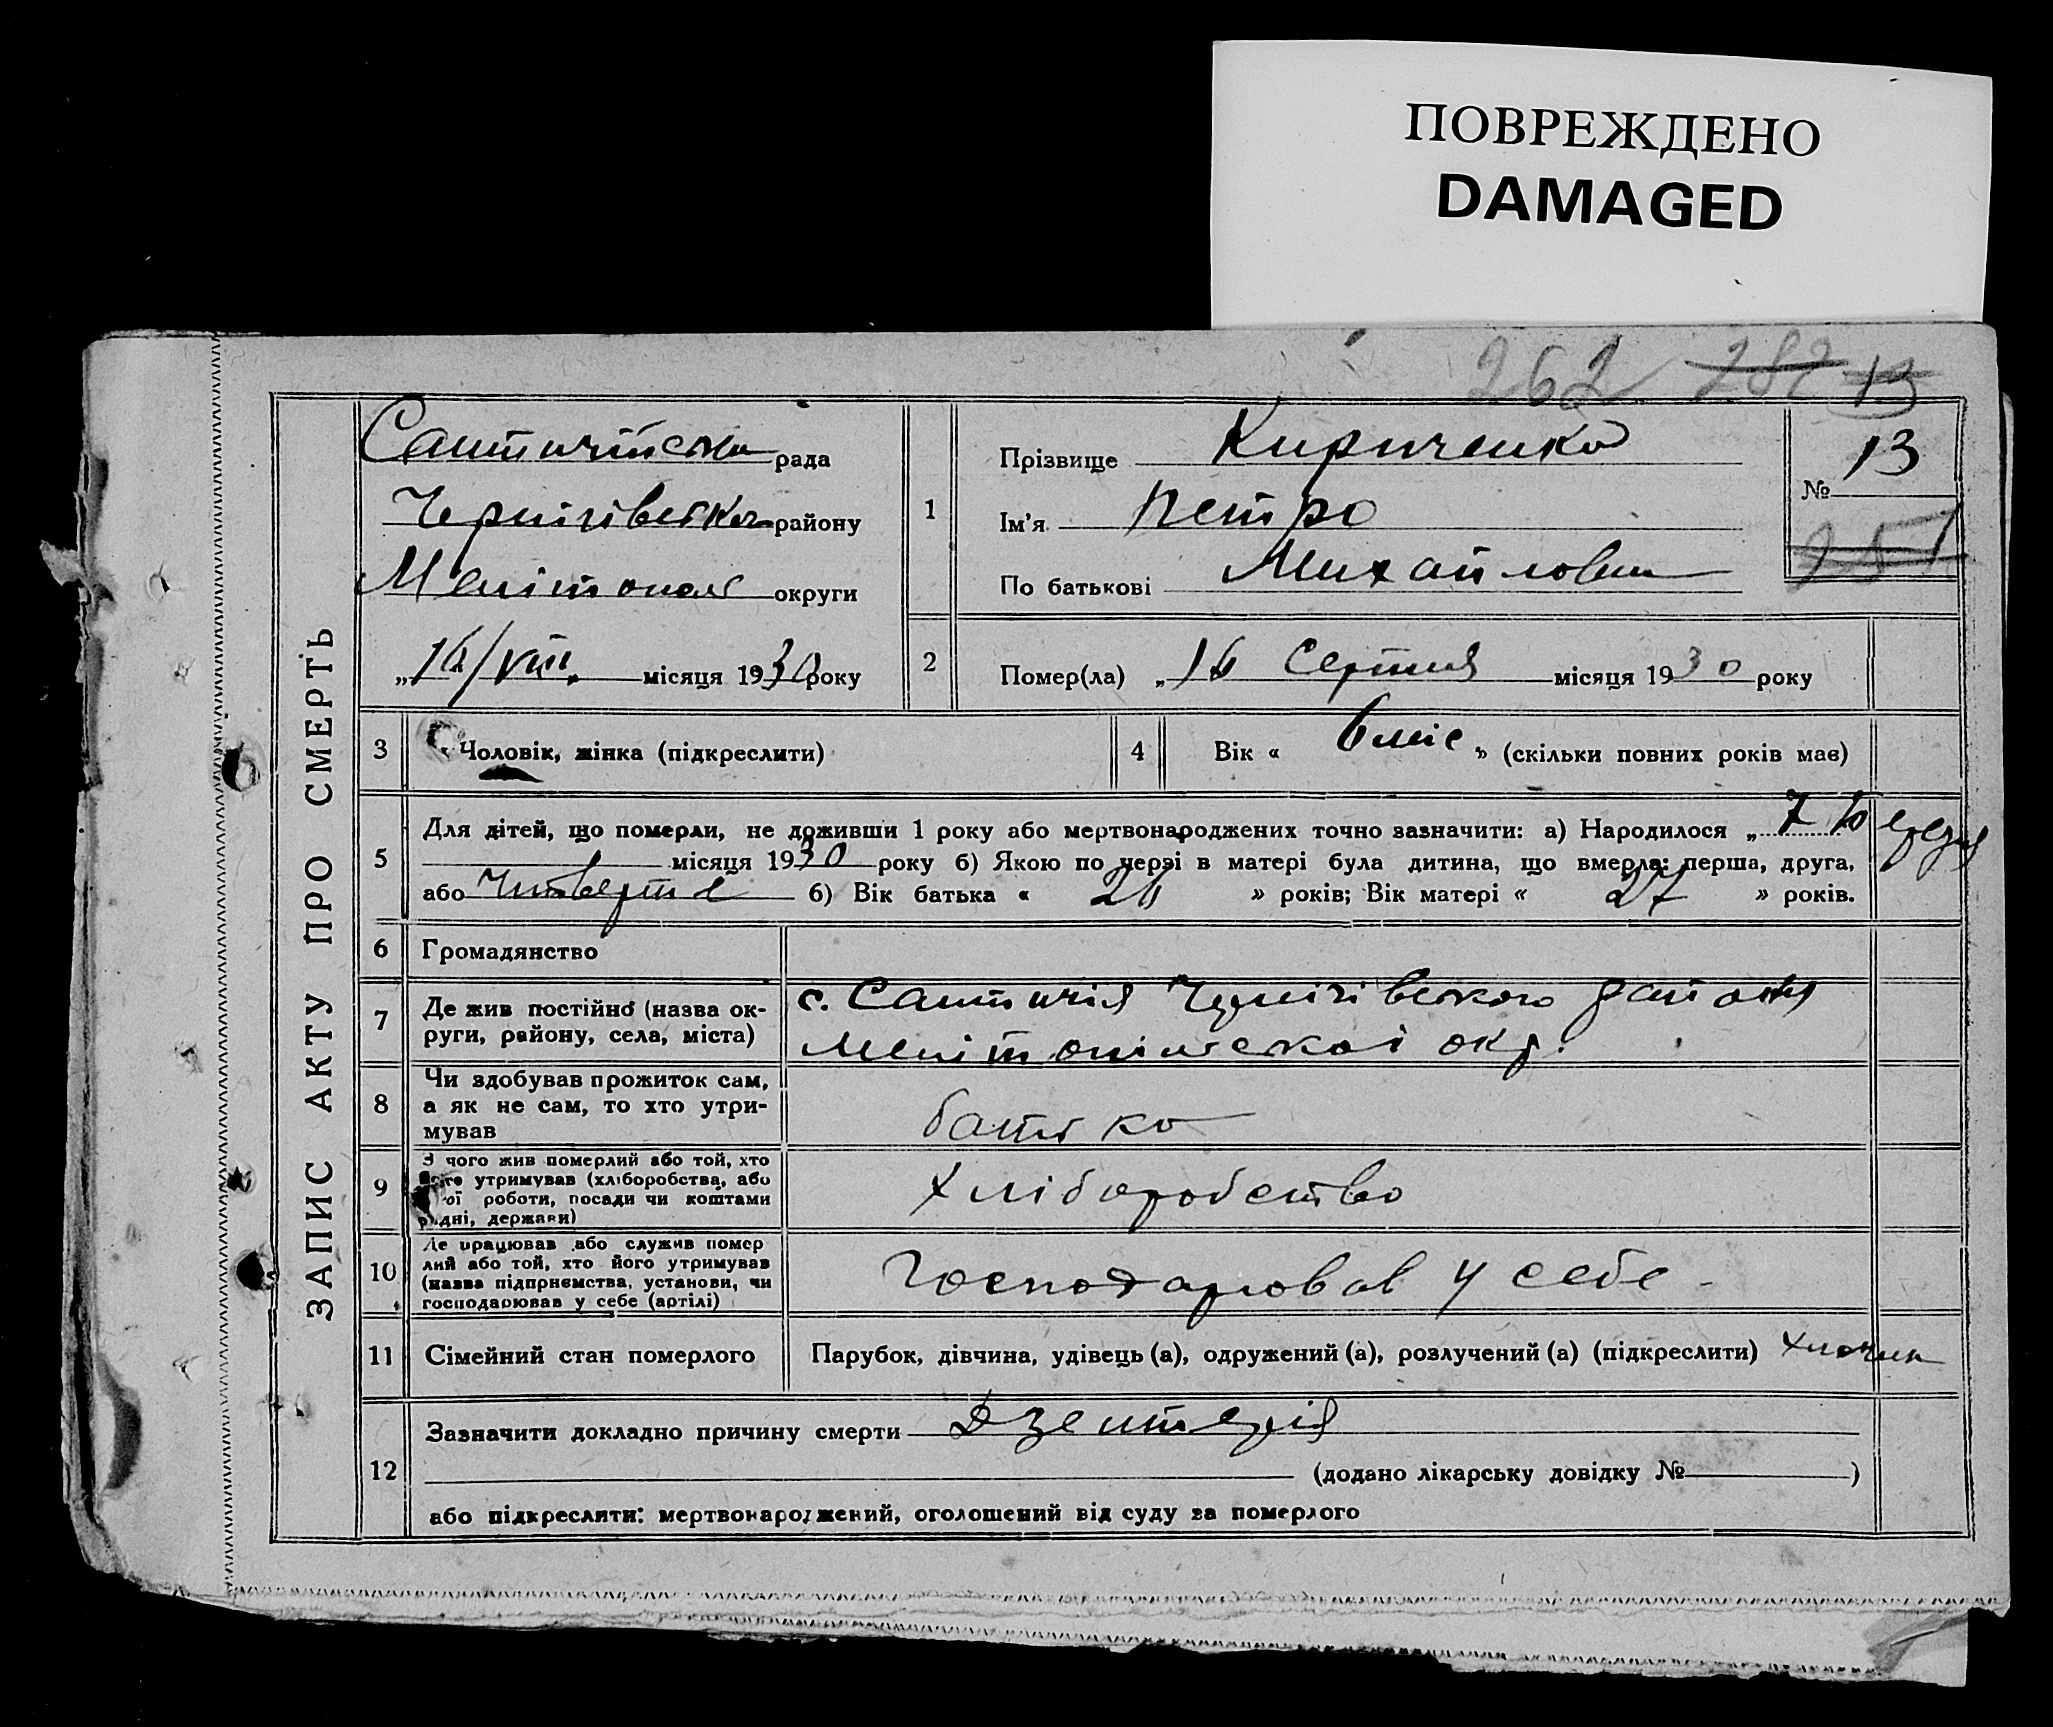 ПОВРЕЖДЕНО
DAMAGED
262 282 13
ЗАПИС АКТУ ПРО СМЕРТЬ
рада
Чернігівська району
Мелітополя округи
„16/VIII„ місяця 1930 року
1
Прізвище Кириченко
Ім'я Петро
По батькові Михайлович
№ 13
2
Помер(ла) „16 Серпня місяця 1930 року
3
Чоловік, жінка (підкреслити)
4
Вік « 6 міс. » (скільки повних років має)
5
Для дітей, що померли, не доживши 1 року або мертвонароджених точно зазначити: а) Народилося „ 7
місяця 1930 року б) Якою по черзі в матері була дитина, що вмерла: перша, друга,
або б) Вік батька « 26 » років; Вік матері « 27 » років.
6
Громадянство
7
Де жив постійно (назва ок-
руги, району, села, міста)
с. Чернігівского району
Мелітопільскої окр.
8
Чи здобував прожиток сам,
а як не сам, то хто утри-
мував
батько
9
З чого жив померлий або той, хто
його утримував (хліборобства, або
ої роботи, посади чи коштами
рідні, держави)
Хліборобство
10
Де працював або служив помер
лий або той, хто його утримував
(назва підприємства, установи, чи
господарював у себе (артілі)
Господарював у себе
11
Сімейний стан померлого
Парубок, дівчина, удівець (а), одружений (а), розлучений (а) (підкреслити) хлопчик
12
Зазначити докладно причину смерти Дзентерія
(додано лікарську довідку № )
або підкреслити: мертвонароджений, оголошений від суду за померлого